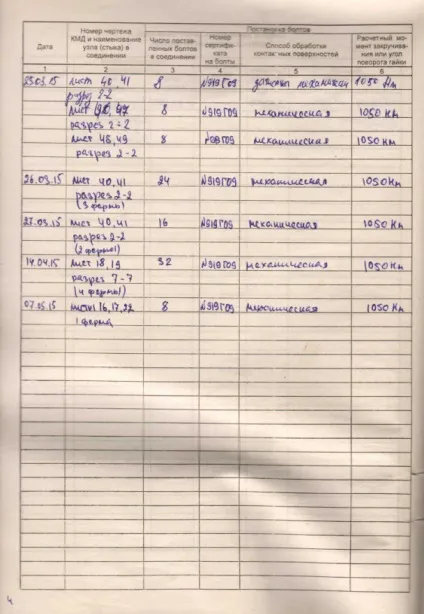 Постановка болтов
Дата
Номер чертежа КМД и наименование узла (стыка) в соединении
Число поставленных болтов в соединении
Номер сертификата на болты
Способ обработки контактных поверхностей
Расчетный момент закручивания или угол поворота гайки
1 2 3 4 5 6
23.03.15 лист 40, 41 8 N919Г09 1050 Нм
2-2
лист 8 N919Г09 механическая 1050 Км
разрез 2-2
лист 48,49 8 механическая 1050 Км
разрез 2-2
26.03.15 лист 40,41 24 N919Г09 механическая 1050 Км
разрез 2-2
(3 фермы)
27.03.15 лист 40,41 16 N919Г09 механическая 1050 Км
разрез 2-2
(2 фермы)
14.04.15 лист 18,19 32 N919Г09 механическая 1050 Км
разрез 7-7
(4 фермы)
07.05.15 16,17,22 8 N919Г09 механическая 1050 Км
1 ферма
4